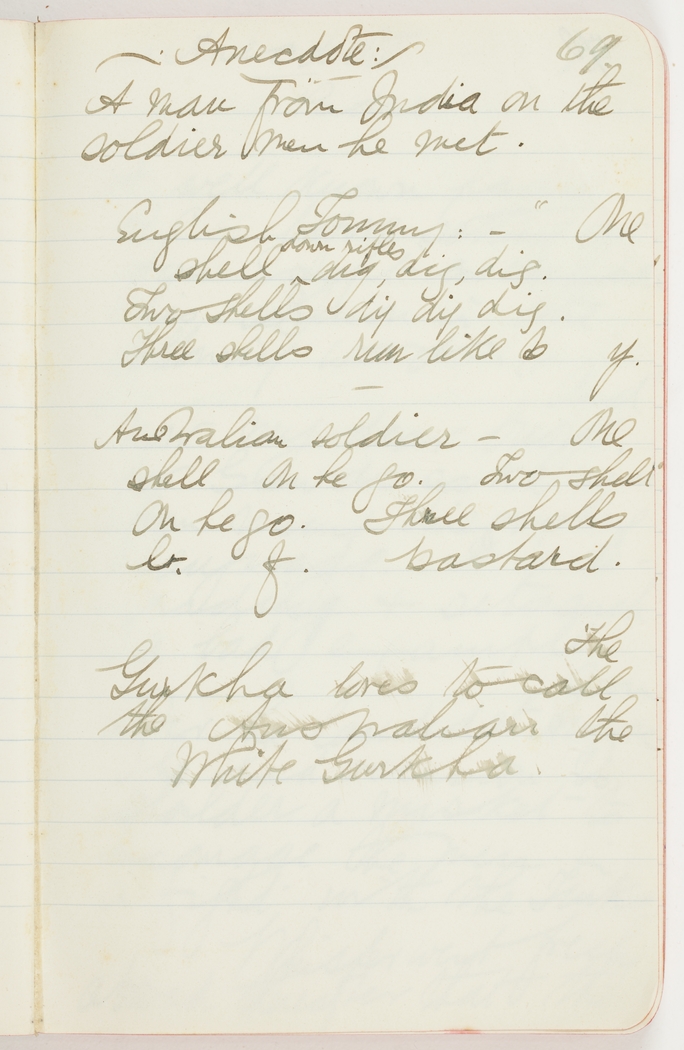 Anecdote: 69
A man from India on the
soldier men he met.
English Tommy: - " One
down rifles
shell ^ dig, dig, dig.
Two shells dig dig dig.
Three shells run like b y.
Australian soldier - One
shell On he go. Two shell
On he go. Three shells
b. f. bastard.
The
Gurkha loves to call
the Australian the
White Gurkha.